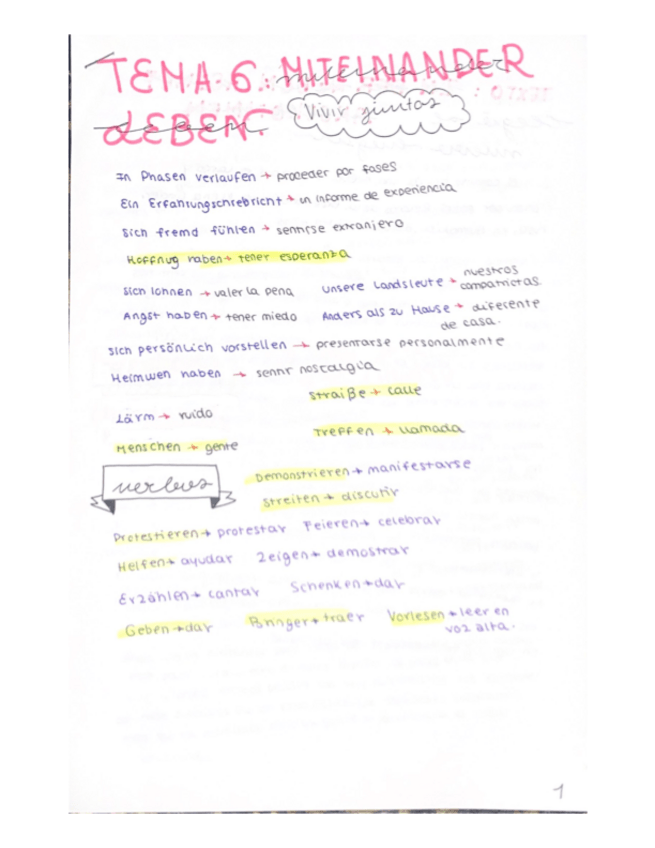 TEMA 6: MITEINANDER
LEBEN.
Vivir juntos
In Phasen verlaufen → proceder por fases
Ein Erfahrungschrebricht → un informe de experiencia
Sich fremd fühlen → sentirse extranjero
Hoffnug haben → tener esperanza
Sich lohnen → valer la pena
unsere Landsleute → nuestros compatriotas.
Angst haben → tener miedo
Anders als zu Hause → diferente de casa.
Sich persönlich vorstellen → presentarse personalmente
Heimweh haben → sentir nostalgia
Straiße → calle
Lärm → ruido
Treffen → llamada
Menschen → gente
verbos
Demonstrieren → manifestarse
Streiten → discutir
Protestieren → protestar Feieren → celebrar
Helfen → ayudar Zeigen → demostrar
Erzählen → cantar Schenken → dar
Geben → dar Bringer → traer Vorlesen → leer en
voz alta.
1